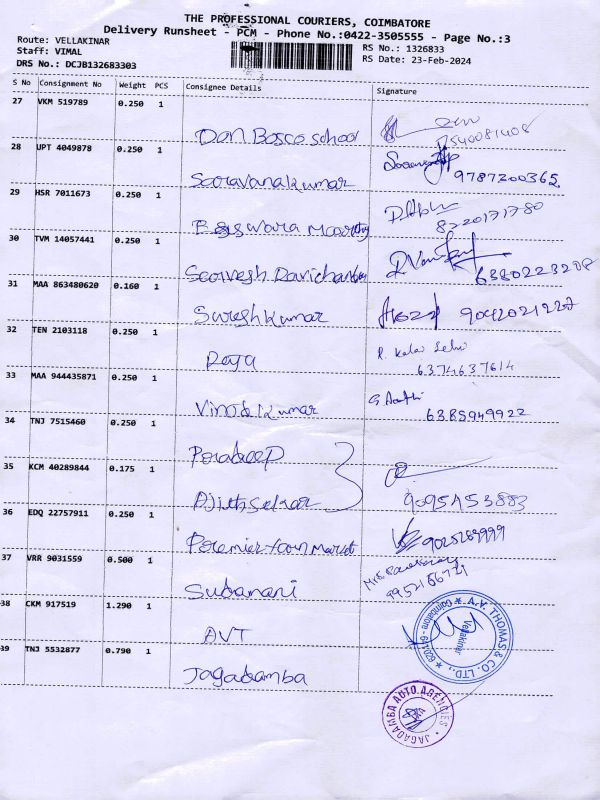 THE PROFESSIONAL COURIERS, COIMBATORE
Delivery Runsheet - PCM - Phone No.:0422-3505555 - Page No.:3
Route: VELLAKINAR
RS No.: 1326833
Staff: VIMAL
RS Date: 23-Feb-2024
DRS No.: DCJB132683303
S No Consignment No Weight PCS Consignee Details Signature
27 VKM 519789 0.250 1
Don Bosco school
28 UPT 4049878 0.250 1
Saravanakumar 9787200365
29 HSR 7011673 0.250 1
8220171780
30 TVM 14057441 0.250 1
Sarvesh Ravichandran 6380223208
31 MAA 863480620 0.160 1
Sureshkumar 9042021227
32 TEN 2103118 0.250 1
Raja R. Kalai Selvi
6374637614
33 MAA 944435871 0.250 1
Vinodkumar 6385949922
34 TNJ 7515460 0.250 1
Pradeep
35 KCM 40289844 0.175 1
Ajithsekar 9095153883
36 EDQ 22757911 0.250 1
Premier Foon Market
37 VRR 9031559 0.500 1
Sudamani
38 CKM 917519 1.290 1
AVT
A.V. THOMAS & CO. LTD.,
Vellakinar
39 TNJ 5532877 0.790 1
Jagadamba
JAGADAMBA AUTO AGENCIES